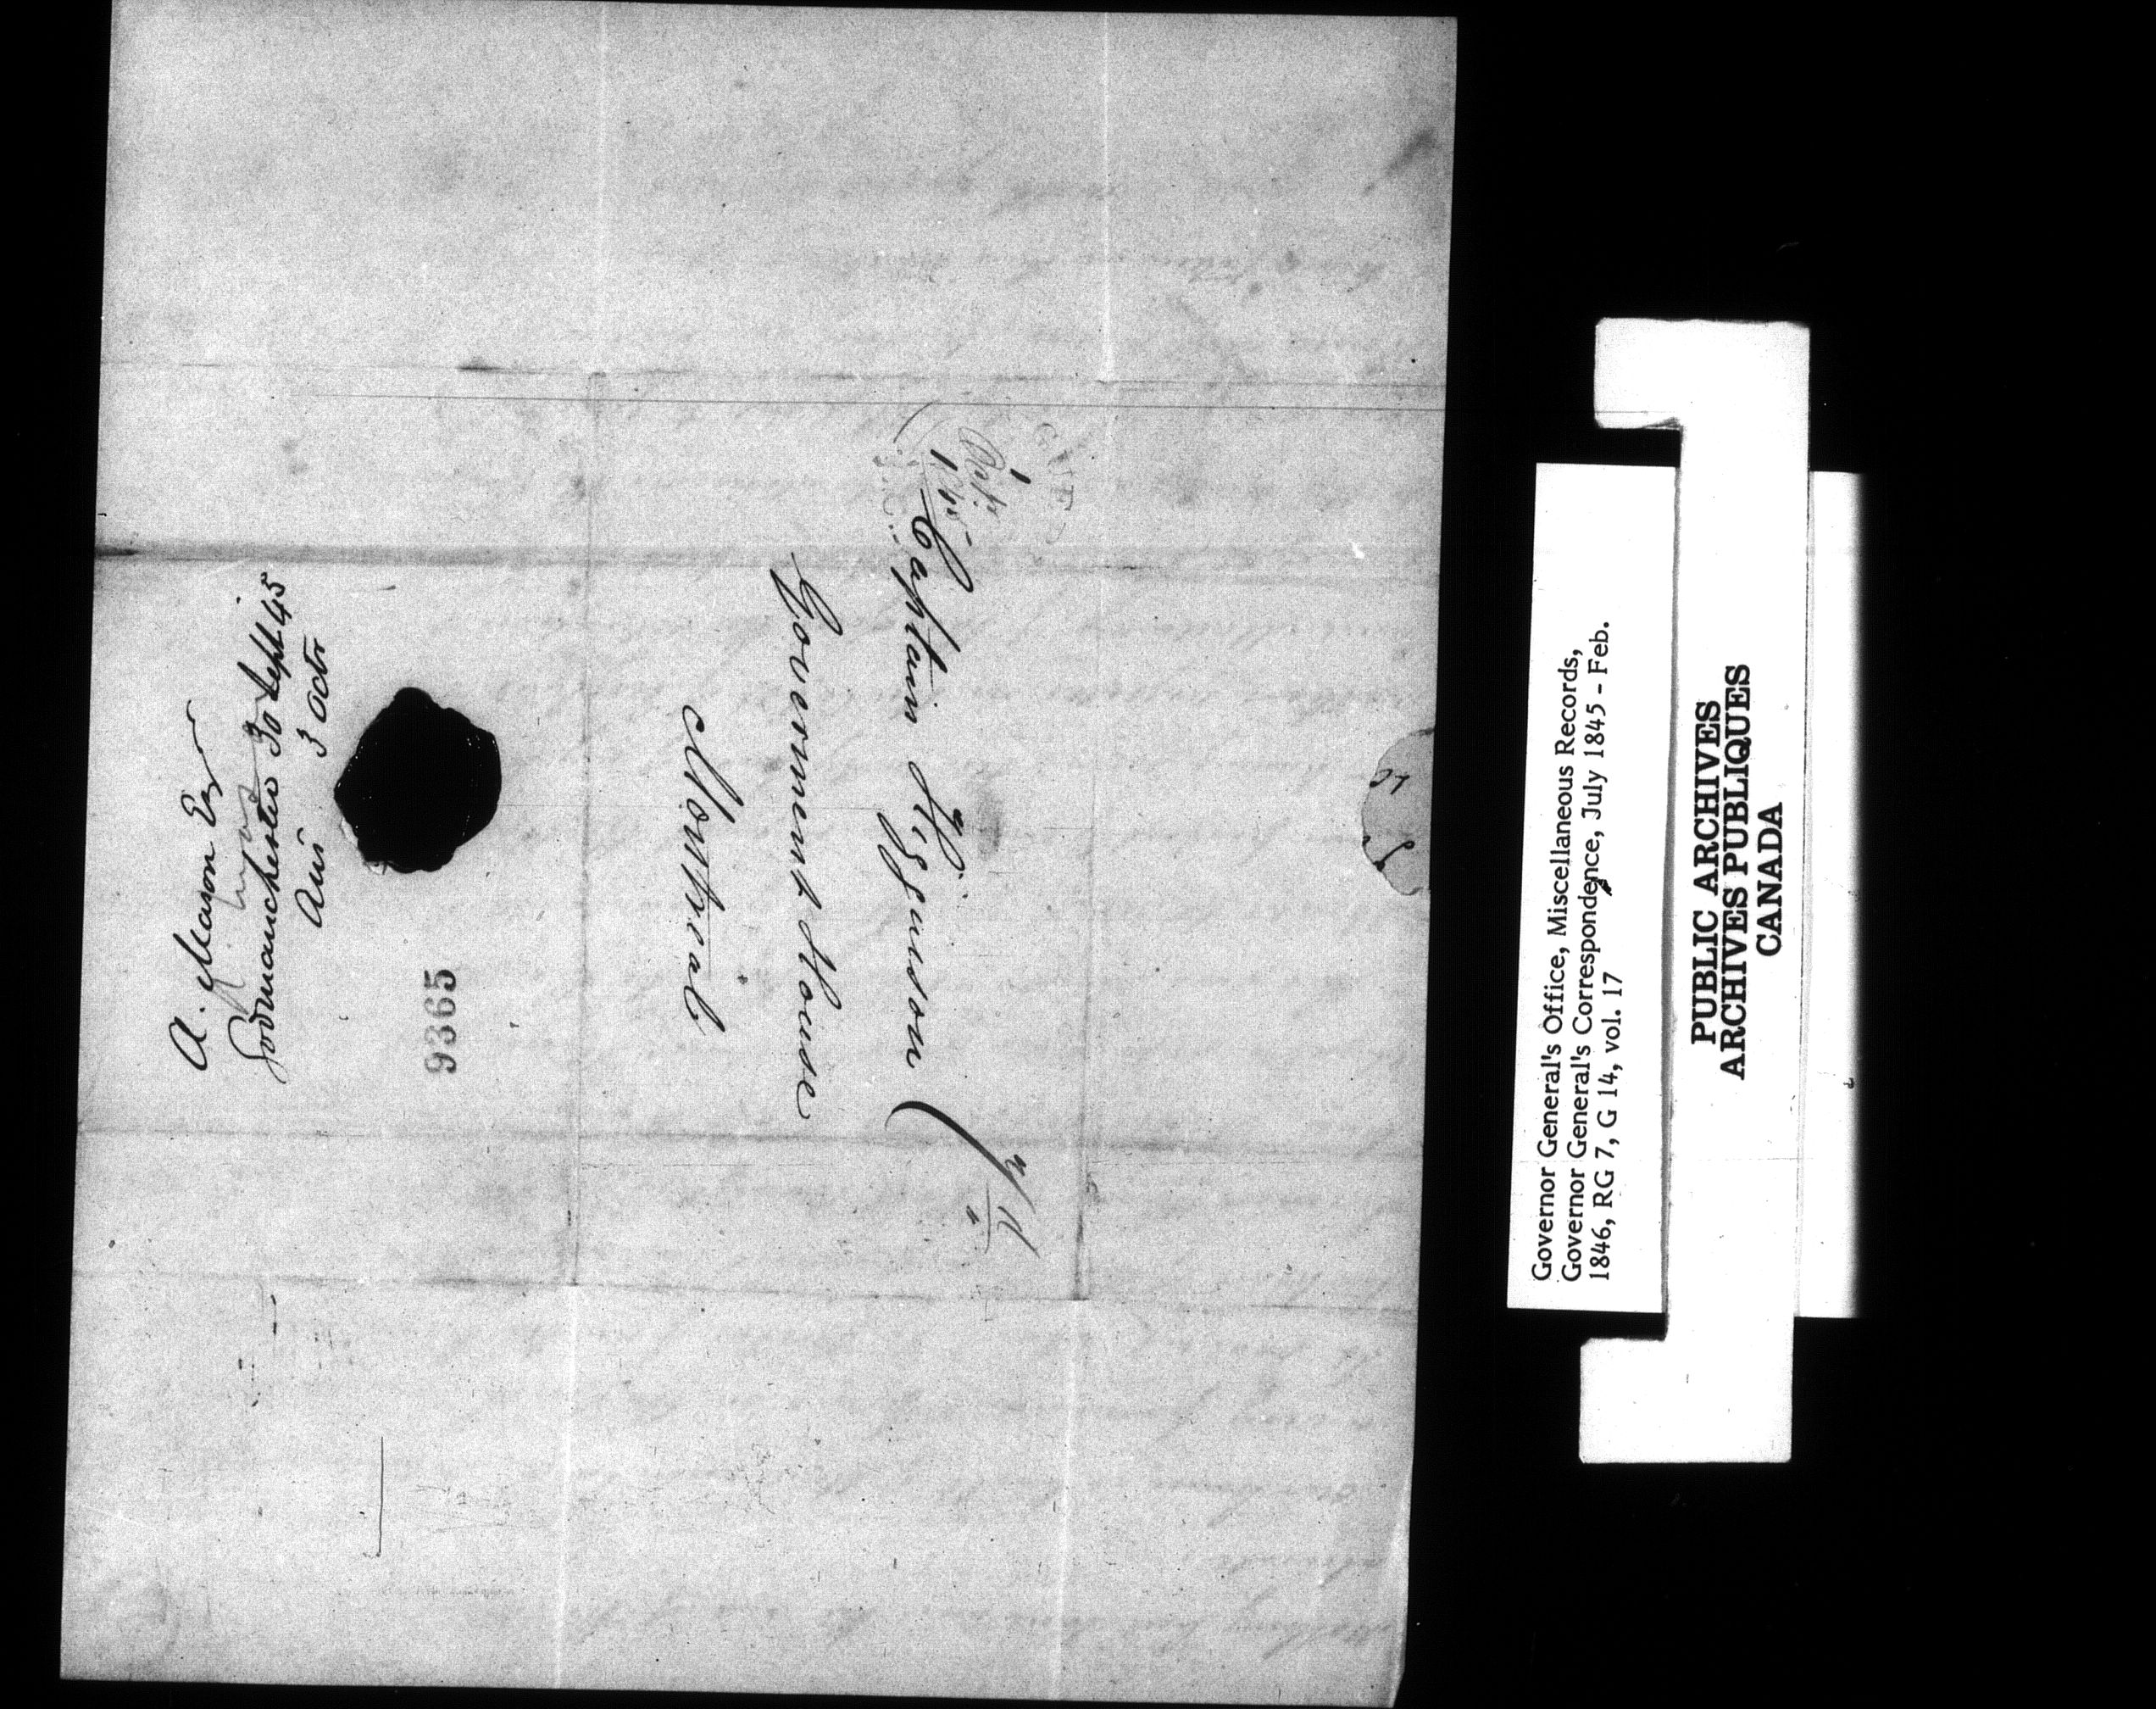 Captain Higginson
Government House
Montreal
A. Mason Esqr
Godmanchester 30 Sept 45
Ans 3 Octr
9365
Governor General's Office, Miscellaneous Records,
Governor General's Correspondence, July 1845 - Feb.
1846, RG 7, G 14, vol. 17
PUBLIC ARCHIVES
ARCHIVES PUBLIQUES
CANADA